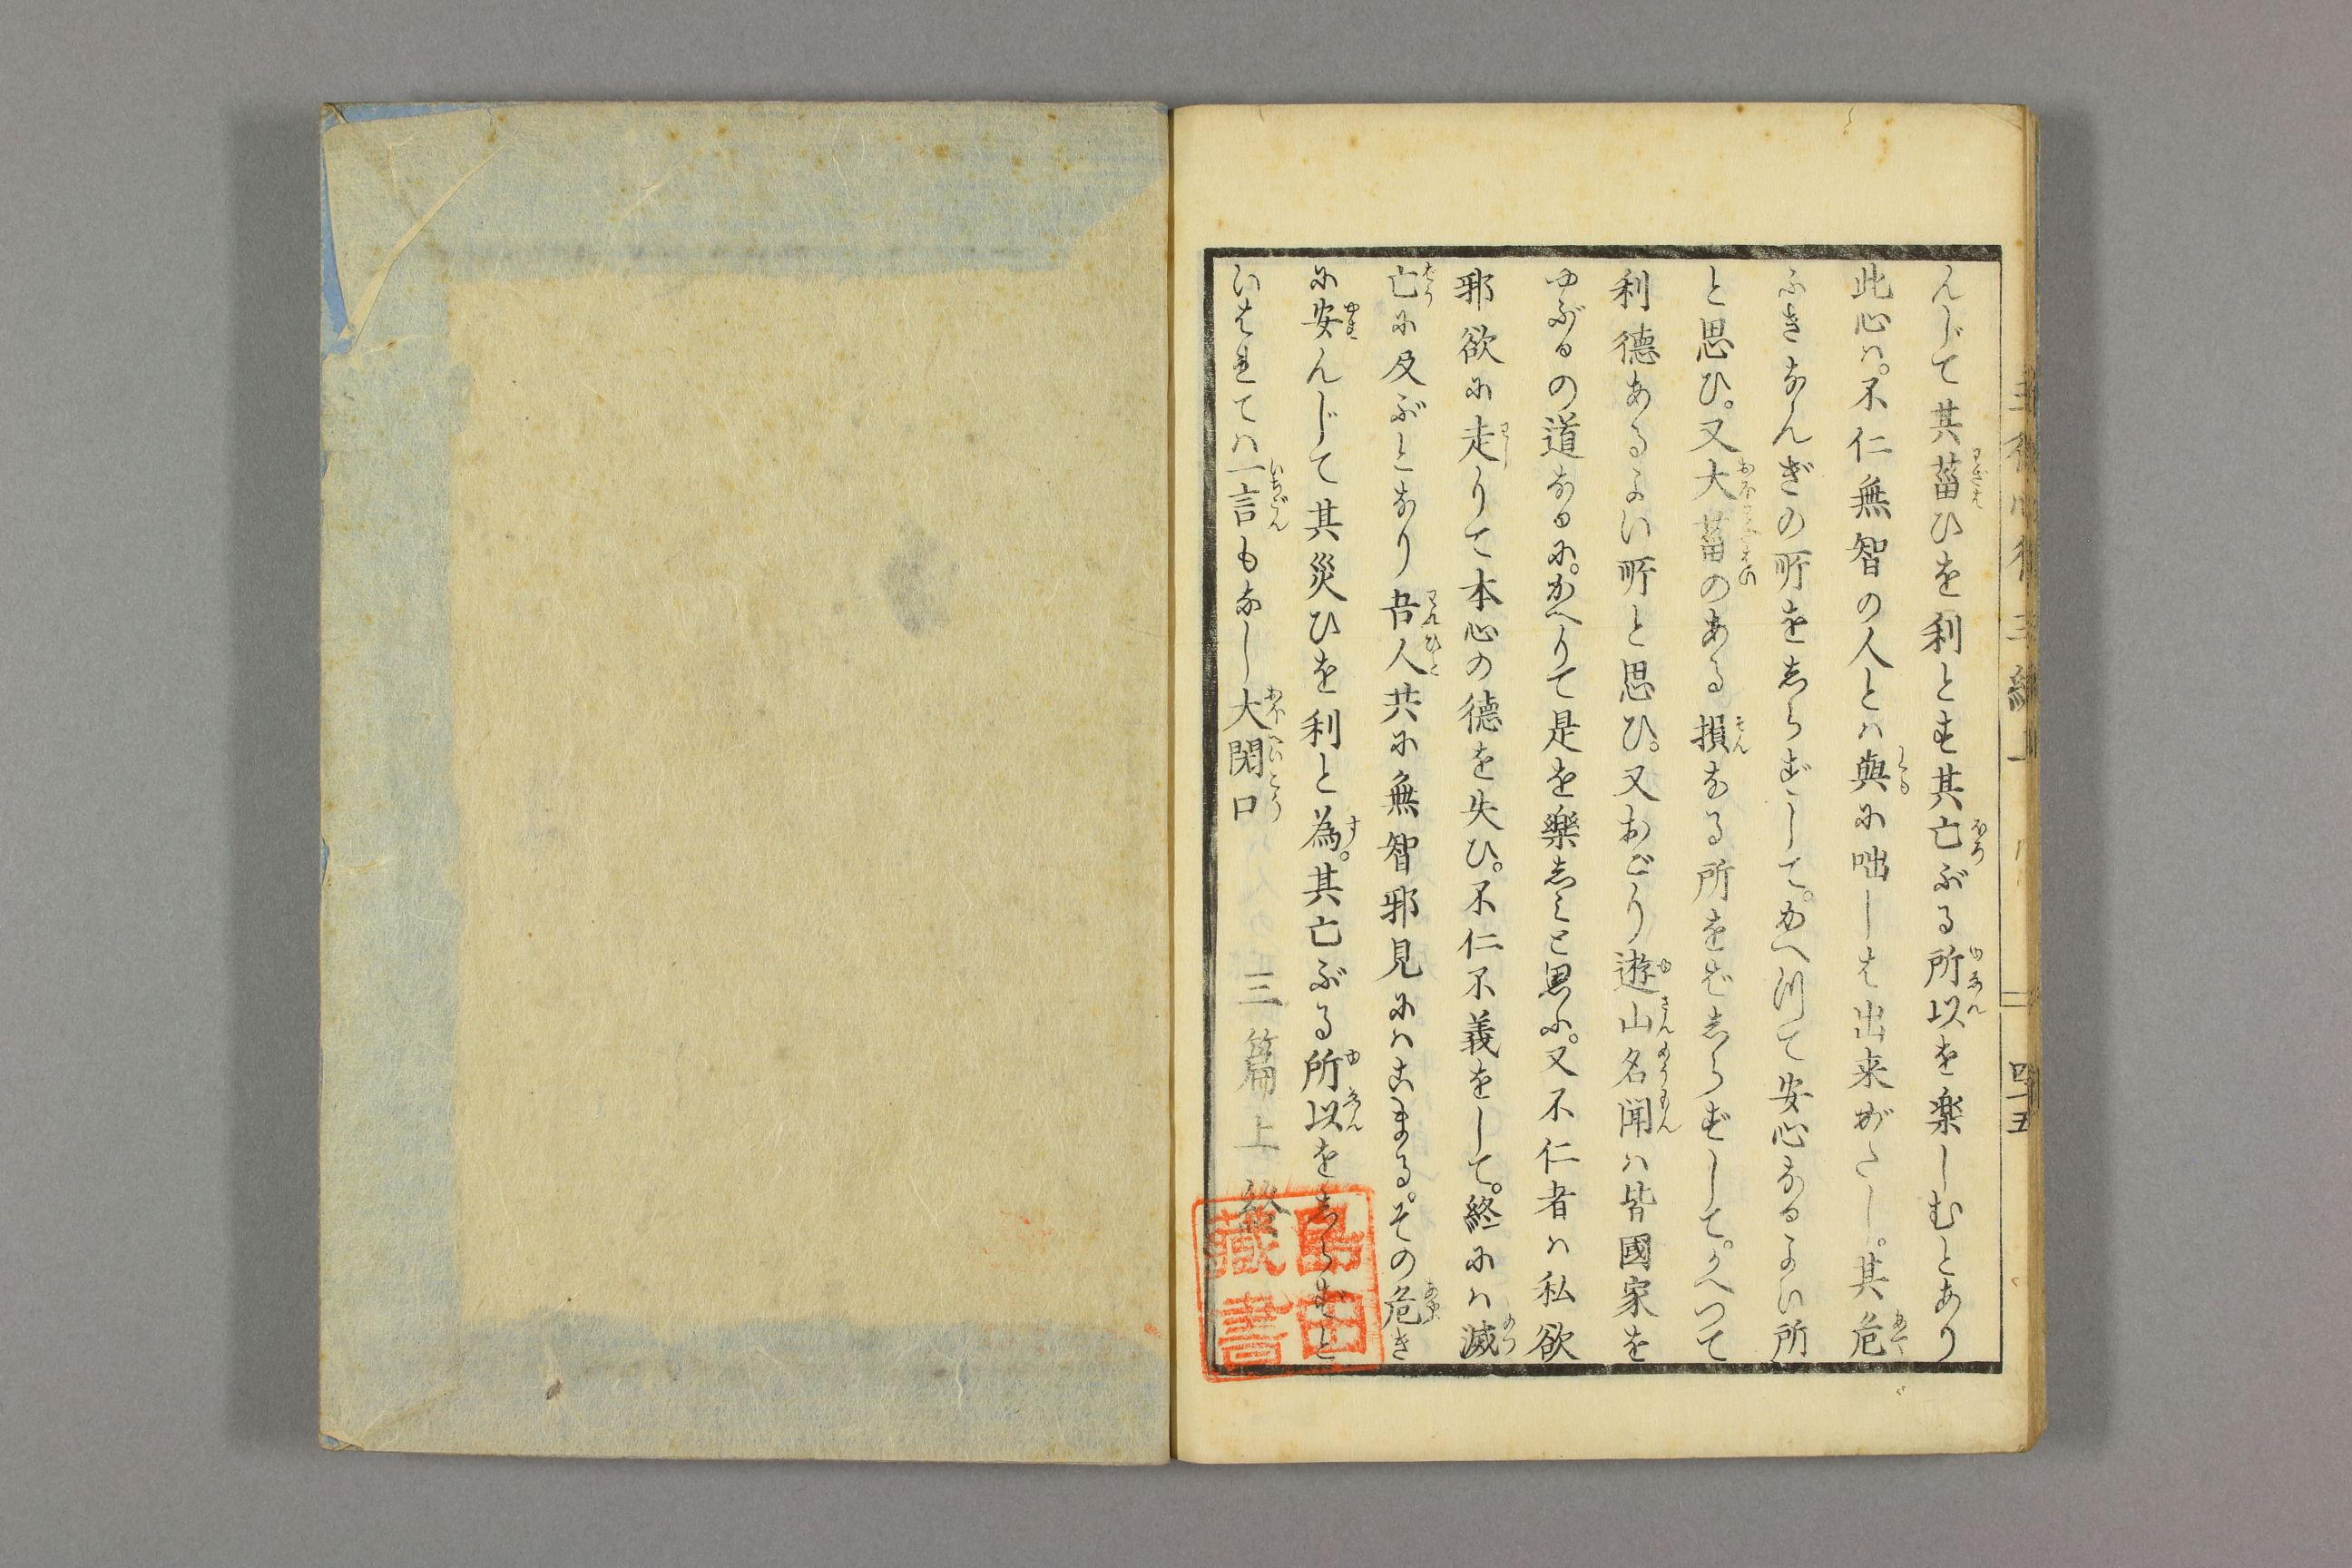 んじて其菑ひを利とす其亡ぶる所以を楽しむとあり
此心ハ。不仁無智の人とハ與に咄しは出来がたし。其危
ふきなんぎの所をしらずして。かへつて安心なるよい所
と思ひ。又大菑のある損なる所をばしらずして。かへつて
利徳あるよい所と思ひ。又おごり遊山名聞ハ皆國家を
ゆぶるの道なるに。かへりて是を樂しミと思ふ。又不仁者ハ私欲
邪欲に走りて本心の徳を失ひ。不仁不義をして。終にハ滅
亡に及ぶとなり吾人共に無智邪見にハこまる。その危き
に安んじて其災ひを利と為。其亡ぶる所以をしらずと
いはれてハ一言もなし大閉口
三篇上終
三編上
四十五
島田
藏書